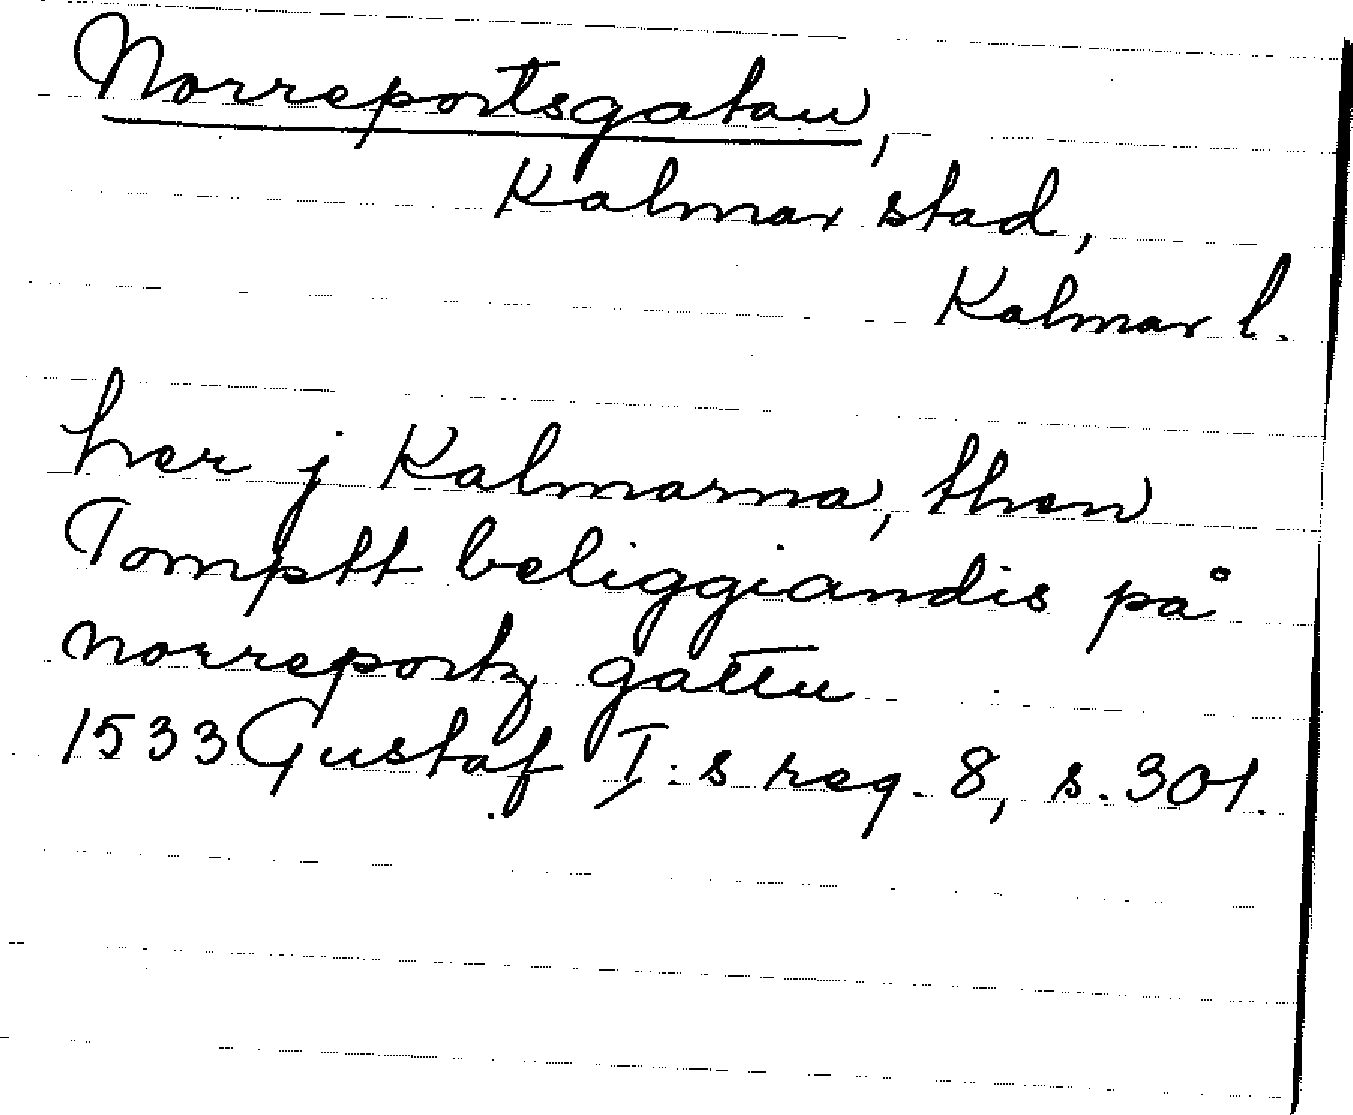 Norreportsgatan,
Kalmar stad,
Kalmar l.
her j Kalmarna, then
Tomptt beliggiandis på
norreportz gattu
1533 Gustaf I:s reg. 8, s. 301.